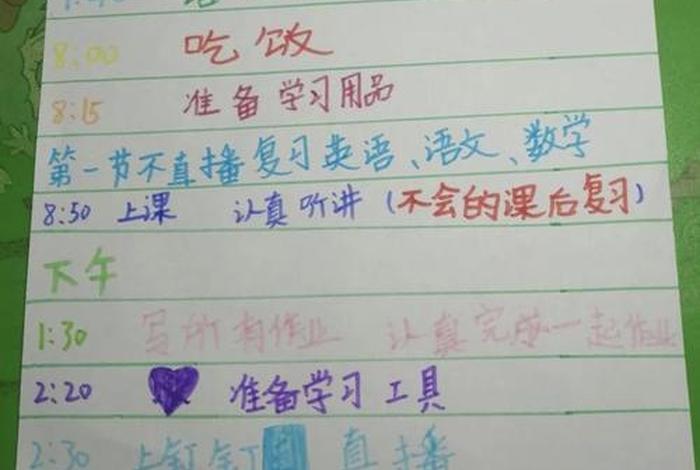 8:00 吃饭
8:15 准备学习用品
第一节不直播复习英语、语文、数学
8:50 上课 认真听讲（不会的课后复习）
下午
1:30 写所有作业 认真完成一起作业
2:20 准备学习工具
2:30 上钉钉 直播